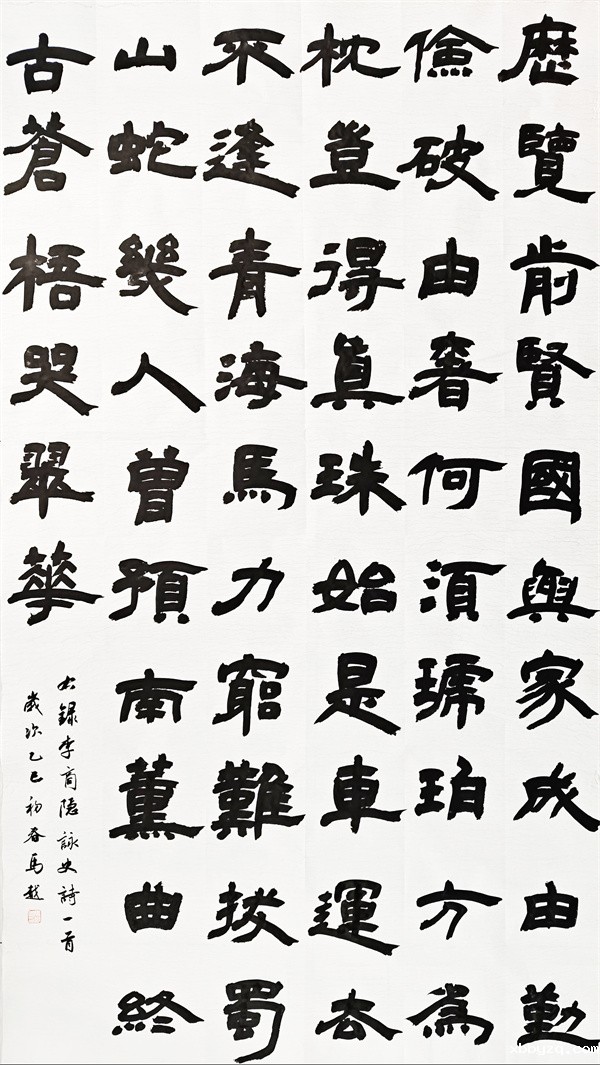 歷覽前賢國與家成由勤
儉破由奢何須琥珀方為
枕豈得眞珠始是車運去
不逢青海馬力窮難拔蜀
山蛇幾人曾預南薰曲終
古蒼梧哭翠華
右錄李商隱詠史詩一首
歲次乙巳初春馬越